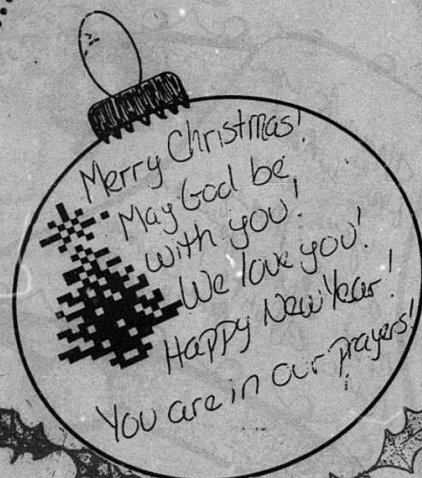 Merry Christmas!
May God be
with you!
We love you!
Happy New Year!
You are in our prayers!